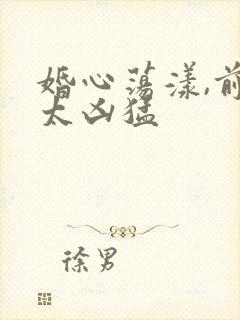 婚心荡漾,前
太凶猛
徐男